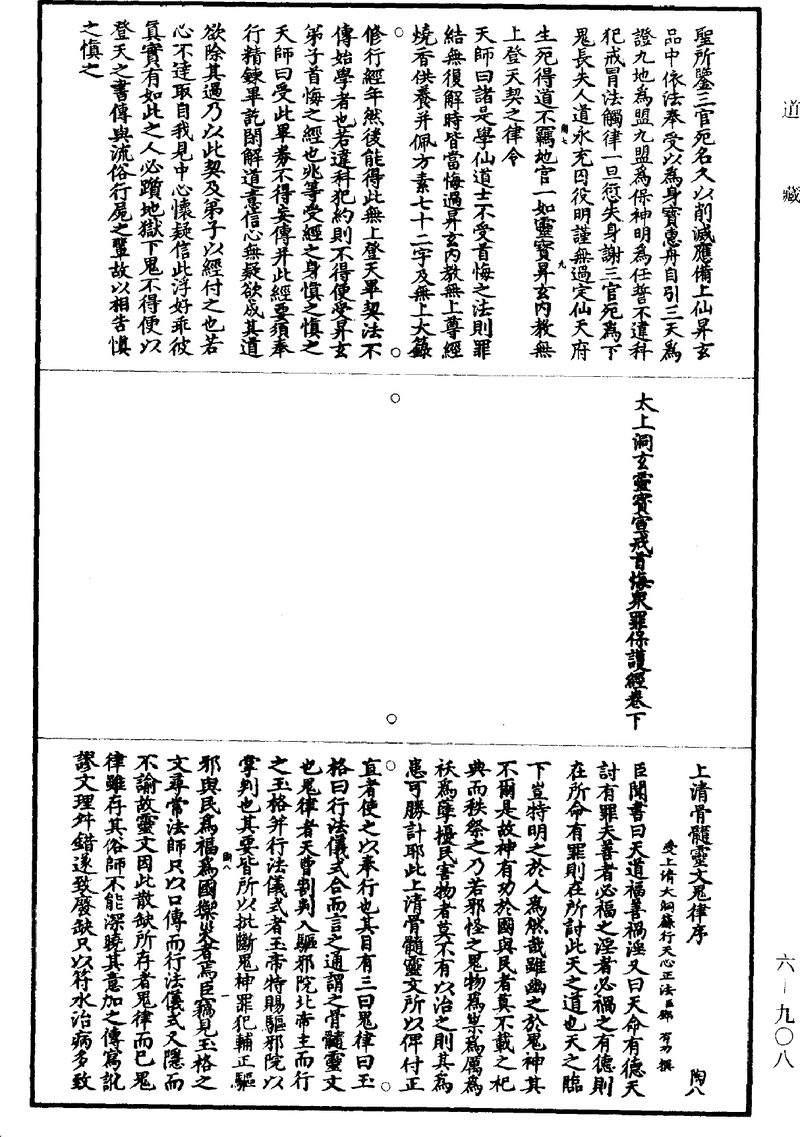 道藏
聖所鑒三官死名久以削滅應備上仙昇玄
品中依法奉受以為身寶惠舟自引三天為
證九地為盟九盟為保神明為任誓不違科
犯戒冒法觸律一旦愆失身謝三官死為下
鬼長夫人道永充囚役明謹無過定仙天府
生死得道不羈地官一如靈寶昇玄內教無
上登天契之律令
天師曰諸是學仙道士不受首悔之法則罪
結無復解時皆當悔過昇玄內教無上尊經
燒香供養并佩方素七十二字及無上大籙
修行經年然後能得此無上登天畢契法不
傳始學者也若違科犯約則不得便受昇玄
弟子首悔之經也兆等受經之身慎之慎之
天師曰受此畢券不得妄傳并此經要須奉
行精鍊畢訖開解道意信心無疑欲成其道
欲除其過乃以此契及弟子以經付之也若
心不達取自我見中心懷疑信此浮好乖彼
真實有如此之人必躓地獄下鬼不得便以
登天之書傳與流俗行屍之輩故以相告慎
之慎之
太上洞玄靈寶宣戒首悔眾罪保護經卷下
上清骨髓靈文鬼律序
陶八
受上清大洞籙行天心正法臣鄧 有功 撰
臣聞書曰天道福善禍淫又曰天命有德天
討有罪夫善者必福之淫者必禍之有德則
在所命有罪則在所討此天之道也天之臨
下豈特明之於人為然哉雖幽之於鬼神其
不爾是故神有功於國與民者莫不載之祀
典而秩祭之乃若邪怪之鬼物為祟為厲為
祅為孽擾民害物者莫不有以治之則其為
患可勝計耶此上清骨髓靈文所以俾付正
直者使之以奉行也其目有三曰鬼律曰玉
格曰行法儀式合而言之通謂之骨髓靈文
也鬼律者天曹割判入驅邪院北帝主而行
之玉格并行法儀式者玉帝特賜驅邪院以
掌判也其要皆所以批斷鬼神罪犯輔正驅
邪與民為福為國禦災者焉臣竊見玉格之
文尋常法師只以口傳而行法儀式又隱而
不諭故靈文因此散缺所存者鬼律而已鬼
律雖存其俗師不能深曉其意加之傳寫訛
謬文理舛錯遂致廢缺只以符水治病多致
六－九〇八